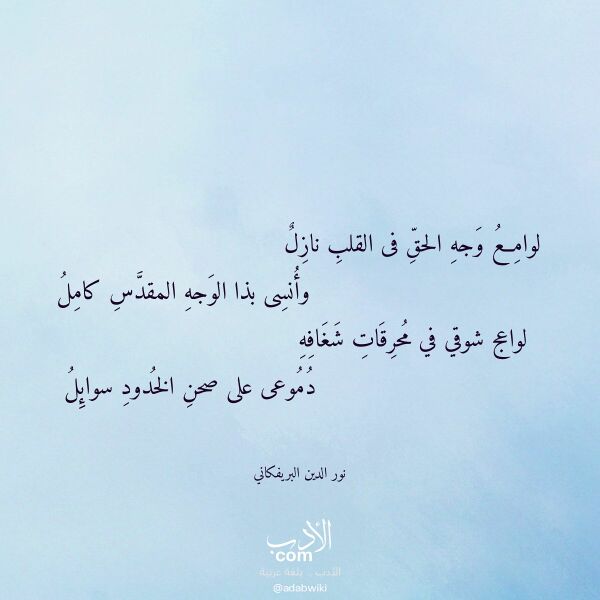 لوامِعُ وَجهِ الحقِّ فى القلبِ نازِلٌ
وأُنسِى بذا الوَجهِ المقدَّسِ كامِلُ
لواعِج شوقي في مُحرِقَاتِ شَغَافِهِ
دُمُوعى على صحنِ الخُدودِ سوايِلُ
نور الدين البريفكاني
الأدب
com
الأدب .. بلغة عربية
@adabwiki